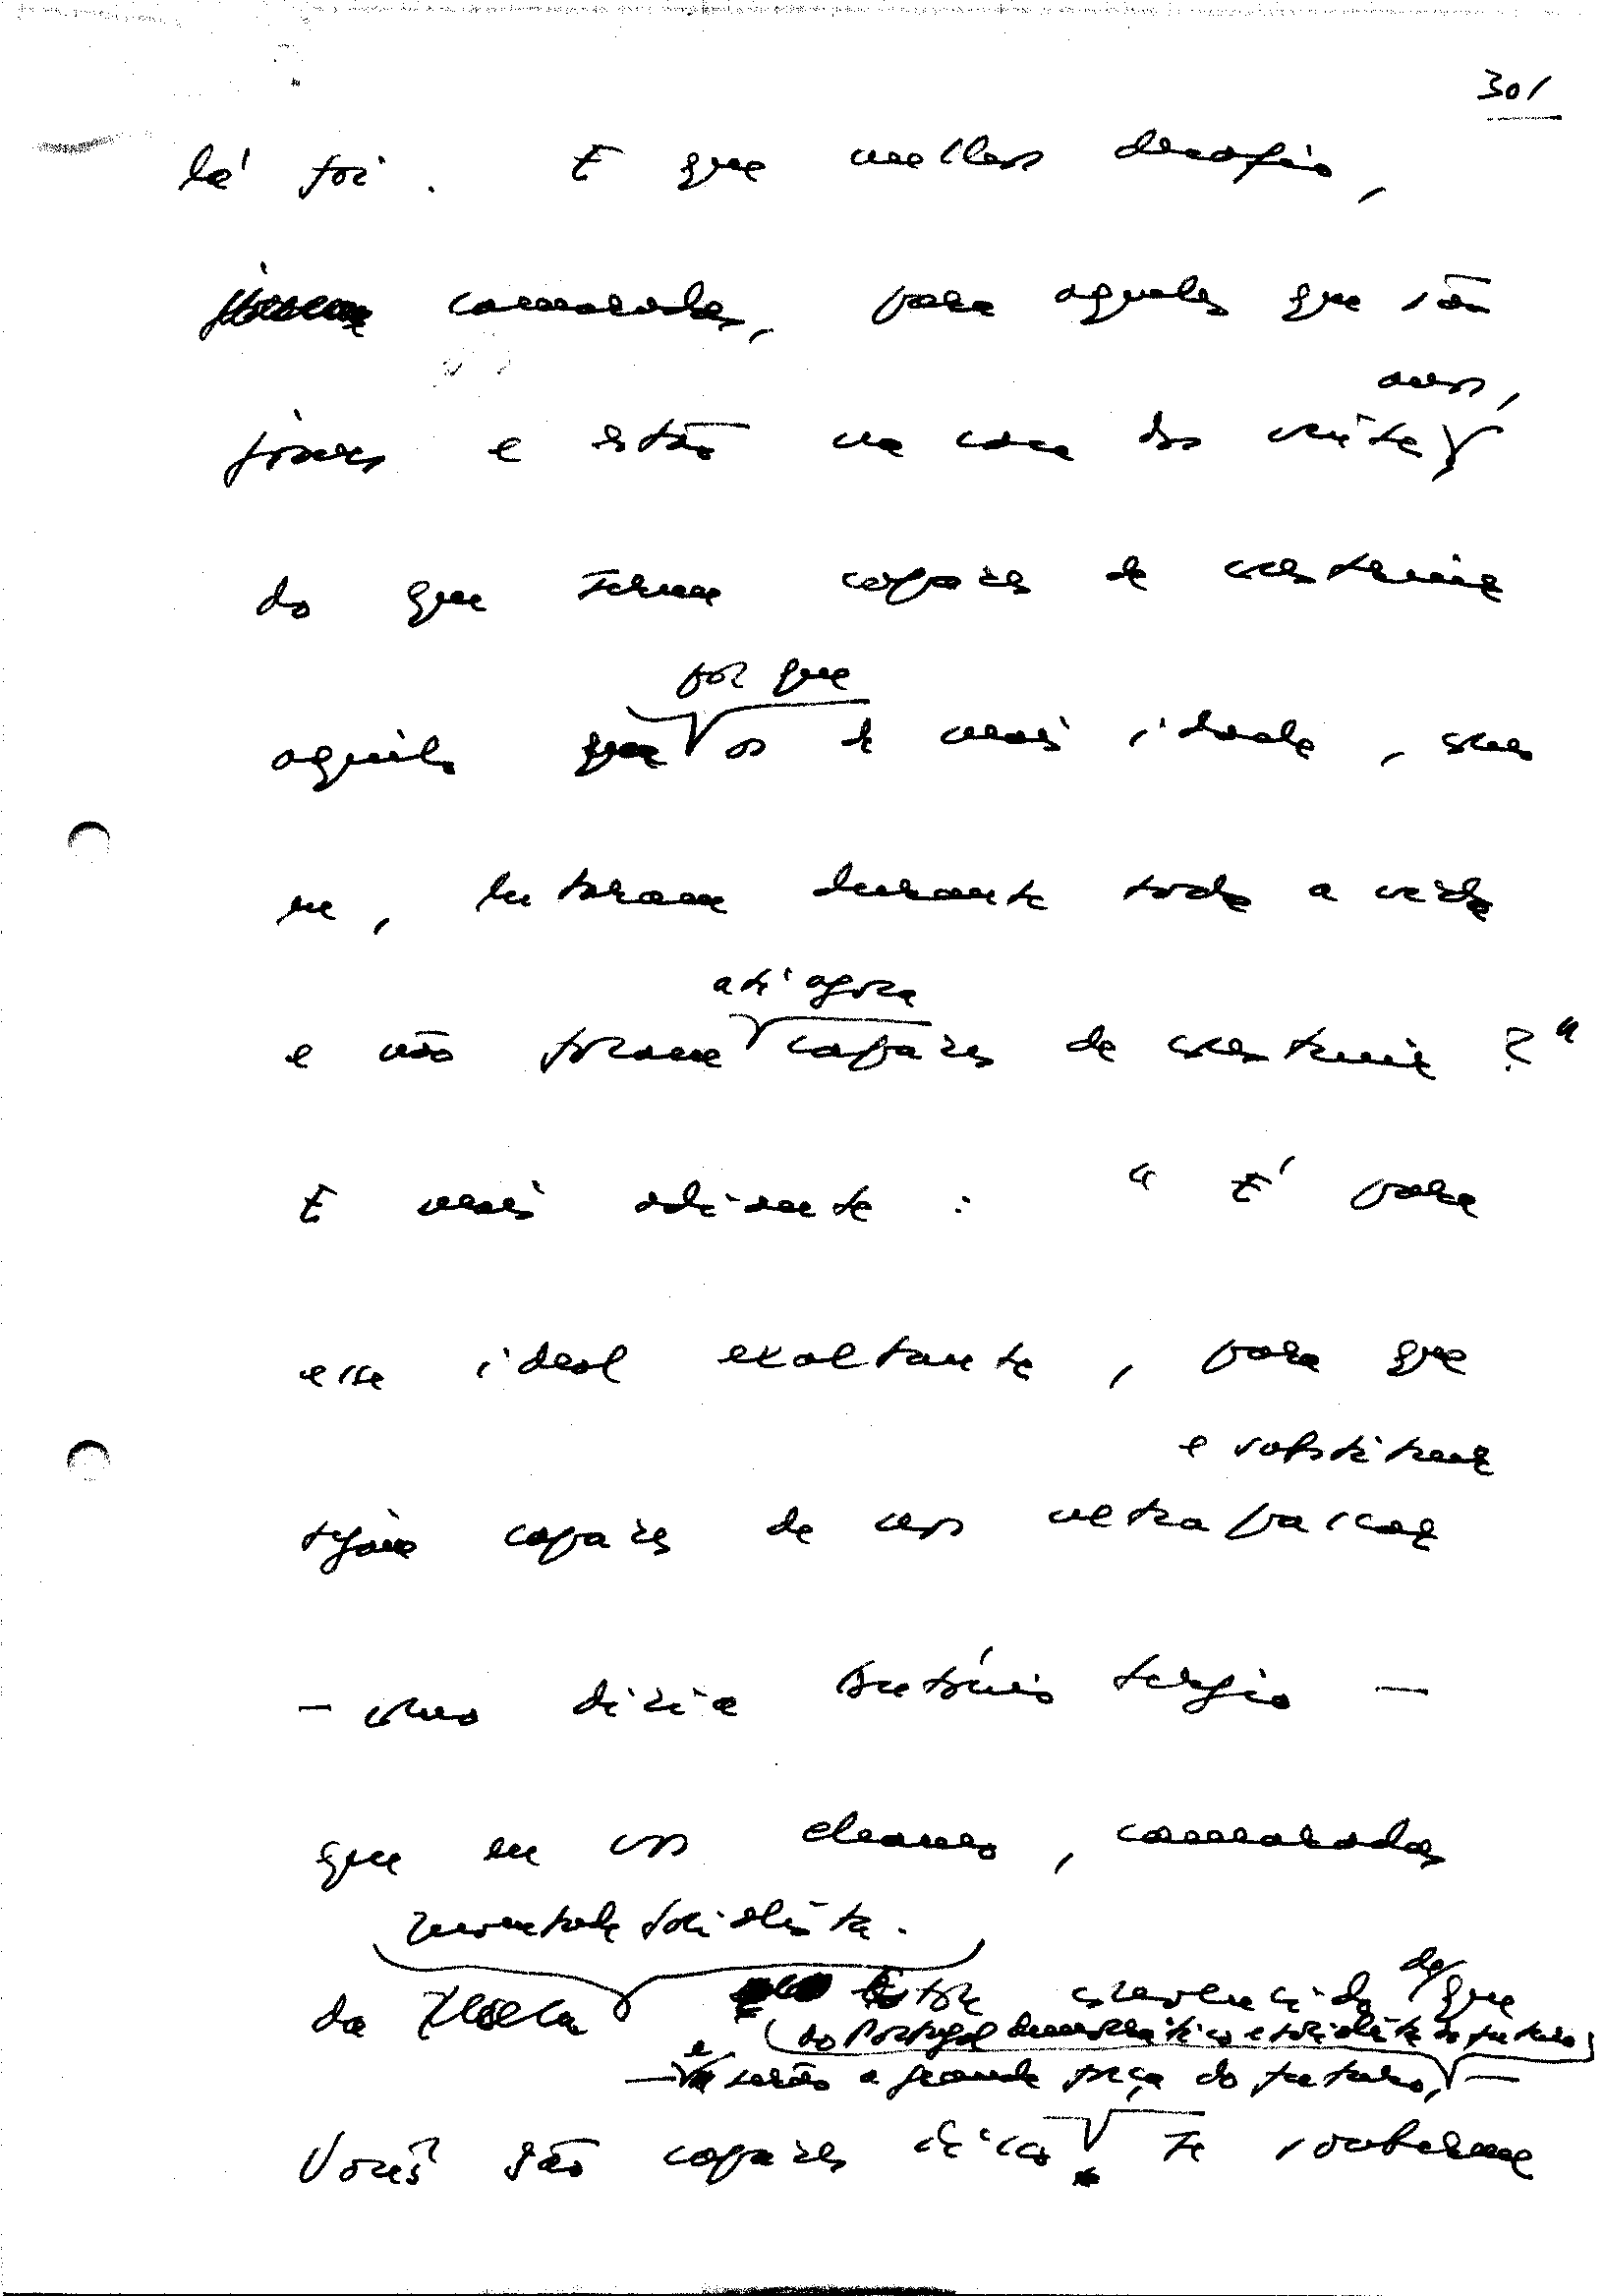 301
lá foi. E que melhor desafio,
camaradas, para aqueles que são
anos,
jovens e estão na casa dos vinte
do que serem capazes de construir
por que
aquilo os de mais idade, como
eu, lutaram durante toda a vida
até agora
e não foram capazes de construir?"
E mais adiante: "É para
esse ideal exaltante, para que
e substituir
sejam capazes de nos ultrapassar
- como dizia António Sérgio -
que eu vos chamo, camaradas
Juventude Socialista.
da Estou convencido de que
do Portugal democrático e socialista do futuro
- e serão a grande força do futuro, -
Vocês são capazes disso se souberem